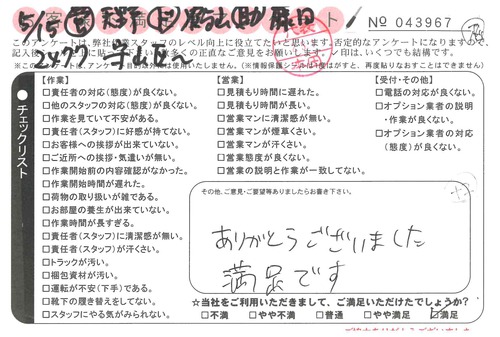 No 043967
このアンケートは、弊社作業スタッフのレベル向上に役立てたいと思います。否定的なアンケートになりますので、
【作業】
□責任者の対応(態度)が良くない。
□他のスタッフの対応(態度)が良くない。
□作業を見ていて不安がある。
□責任者(スタッフ)に好感が持てない。
□お客様への挨拶が出来ていない。
□ご近所への挨拶・気遣いが無い。
□作業開始前の内容確認がなかった。
□作業開始時間が遅れた。
□荷物の取り扱いが雑である。
□お部屋の養生が出来ていない。
□作業時間が長すぎる。
□責任者(スタッフ)に清潔感が無い。
□責任者(スタッフ)が汗くさい。
□トラックが汚い。
□梱包資材が汚い。
□運転が不安(下手)である。
□靴下の履き替えをしてない。
□スタッフにやる気がみられない。
【営業】
□見積もり時間に遅れた。
□見積もり時間が長い。
□営業マンに清潔感が無い。
□営業マンが煙草くさい。
□営業マンが汗くさい。
□営業態度が良くない。
□営業の説明と作業が一致してない。
【受付・その他】
□電話の対応が良くない。
□オプション業者の説明
・作業が良くない。
□オプション業者の対応
(態度)が良くない。
チェックリスト
その他、ご意見・ご要望等ありましたらお書き下さい。
ありがとうございました
満足です
☆当社をご利用いただきまして、ご満足いただけたでしょうか?
□不満 □やや不満 □普通 □やや満足 □満足